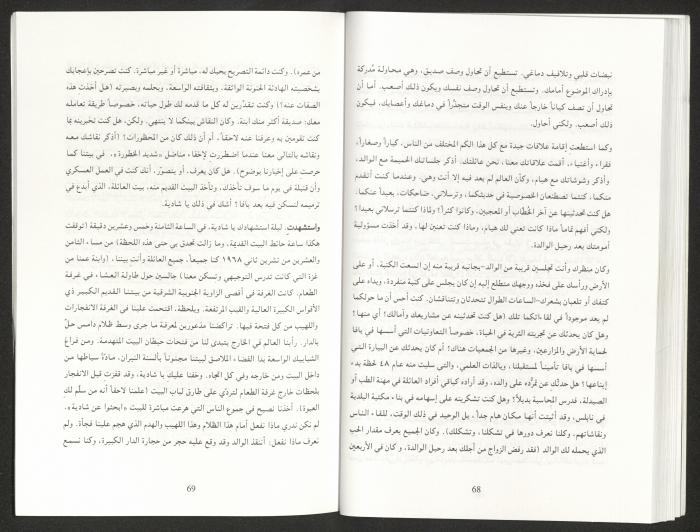 نبضات قلبي وتلافيف دماغي. تستطيع أن تحاول وصف صديق، وهي محاولة مُدركة
بإدراك الموضوع أمامك. وتستطيع أن تحاول وصف نفسك ويكون ذلك أصعب. أما أن
تحاول أن تصف كياناً خارجاً عنك وبنفس الوقت متجذّراً في دماغك وأعصابك، فيكون
ذلك أصعب. ولكني أحاول.
وكما استطعت إقامة علاقات جيدة مع كل هذا الكم المختلف من الناس، كباراً وصغاراً،
فقراء وأغنياء، أقمت علاقاتك معنا، نحن عائلتك. أذكر جلساتك الحميمة مع الوالد،
وأذكر وشوشاتك مع هيام، وكأن العالم لم يعد فيه إلا أنت وهي. وعندما كنت أنتقد
منكما، كنتما تصطنعان الخصوصية في حديثكما، وترسلاني، ضاحكات، بعيداً عنكما.
هل كنت تحدثينها عن آخر الخُطّاب أو المعجبين، وكانوا كثراً؟ ولماذا كنتما ترسلاني بعيداً؟
ولكني أفهم تماماً ماذا كانت تعني لك هيام، وماذا كنت تعنين لها، وقد أخذت مسؤولية
أمومتك بعد رحيل الوالدة.
وكان منظرك وأنت تجلسين قريبة من الوالد-بجانبه قريبة منه إن اتسعت الكنبة، أو على
الأرض ورأسك على فخذه ووجهك متطلع إليه إن كان يجلس على كنبة منفردة، ويداه على
كتفك أو تلعبان بشعرك-الساعات الطوال تتحدثان وتتناقشان. كنت أحس أن ما حولكما
لم يعد موجوداً في لقاءاتكما تلك (هل كنت تحدثينه عن مشاريعك وآمالك؟ أي منها؟
وهل كان يحدثك عن تجربته الثرية في الحياة، خصوصاً التعاونيات التي أسسها في يافا
لحماية الأرض والمزارعين، وغيرها من الجمعيات هناك؟ أم كان يحدثك عن البيارة التي
أسسها في يافا تأميناً لمستقبلنا، وبالفات العلمي، والتي سلبت منه عام ٤٨ لحظة بدء
إيناعها؟ هل حدثك عن تمرُّده على والده، وقد أراده كباقي أفراد العائلة في مهنة الطب أو
الصيدلة، فدرس المحاسبة بديلاً؟ وهل كنت تشكرينه على إسهامه في بناء مكتبة البلدية
في نابلس، وقد أثبتت أنها مكان هام جداً، بل الوحيد في ذلك الوقت، للقاء الناس
ونقاشاتهم، وكلنا نعرف دورها في تشكلنا، وتشكلك). وكان الجميع يعرف مقدار الحب
الذي يحمله لك الوالد (فقد رفض الزواج من أجلك بعد رحيل الوالدة، وكان في الأربعين
68
من عمره). وكنت دائمة التصريح بحبك له، مباشرة أو غير مباشرة. كنت تصرحين بإعجابك
بشخصيته الهادئة الحنونة الواثقة، وبثقافته الواسعة، وبحلمه وبصيرته (هل أخذت هذه
الصفات عنه؟) وكنت تقدّرين له كل ما قدمه لك طول حياته، خصوصاً طريقة تعامله
معك: صديقة أكثر منك ابنة. وكان النقاش بينكما لا ينتهي. ولكن، هل كنت تخبرينه بما
كنت تقومين به وعرفنا عنه لاحقاً، أم أن ذلك كان من المحظورات؟ (أذكر نقاشك معه
ونقاشه بالتالي معنا عندما اضطررتِ لإخفاء مناضل «شديد الخطورة»، في بيتنا كما
حرصت على إخبارنا بوضوح). هل كان يعرف، أو يتصوّر، أنك كنت في العمل العسكري
وأن قنبلة في يوم ما سوف تأخذك، وتأخذ البيت القديم منه، بيت العائلة، الذي أبدع في
ترميمه لتسكن فيه بعد يافا؟ أشك في ذلك يا شادية.
واستشهدتِ. ليلة استشهادك يا شادية، في الساعة الثامنة وخمس وعشرين دقيقة (توقفت
هكذا ساعة حائط البيت القديمة، وما زالت تحدق بي حتى هذه اللحظة) من مساء الثامن
والعشرين من تشرين ثاني ١٩٦٨ كنا جميعاً، جميع العائلة وأنت بيننا، (وابنة عمنا من
غزة التي كانت تدرس التوجيهي وتسكن معنا) جالسين حول طاولة العشاء، في غرفة
الطعام. كانت الغرفة في أقصى الزاوية الجنوبية الشرقية من بيتنا القديم الكبير ذي
الأقواس الكبيرة العالية والقبب المرتفعة. وبلحظة، اقتحمت علينا في الغرفة الانفجارات
واللهيب من كل فتحة فيها. تراكضنا مذعورين لمعرفة ما جرى وسط ظلام دامس حلّ
بالدار. رأينا العالم في الخارج يتبدى لنا من فتحات حيطان البيت المتهدمة. ومن فراغ
الشبابيك الواسعة بدا الفضاء الملاصق لبيتنا مجنوناً بألسنة النيران، مادّة سياطها من
داخل البيت ومن خارجه وفي كل اتجاه. وخفنا عليك يا شادية، وقد قفزتِ قبل الانفجار
بلحظات خارج غرفة الطعام لتردّي على طارق لباب البيت (علمنا لاحقاً أنه من سلّم لك
العبوة). أخذنا نصيح في جموع الناس التي هرعت مباشرة للبيت «ابحثوا عن شادية».
لم نكن ندري ماذا نفعل أمام هذا الظلام وهذا اللهيب والهدم الذي هجم علينا فجأة. ولم
نعرف ماذا نفعل: أننقذ الوالد وقد وقع عليه حجر من حجارة الدار الكبيرة، وكنا نسمع
69